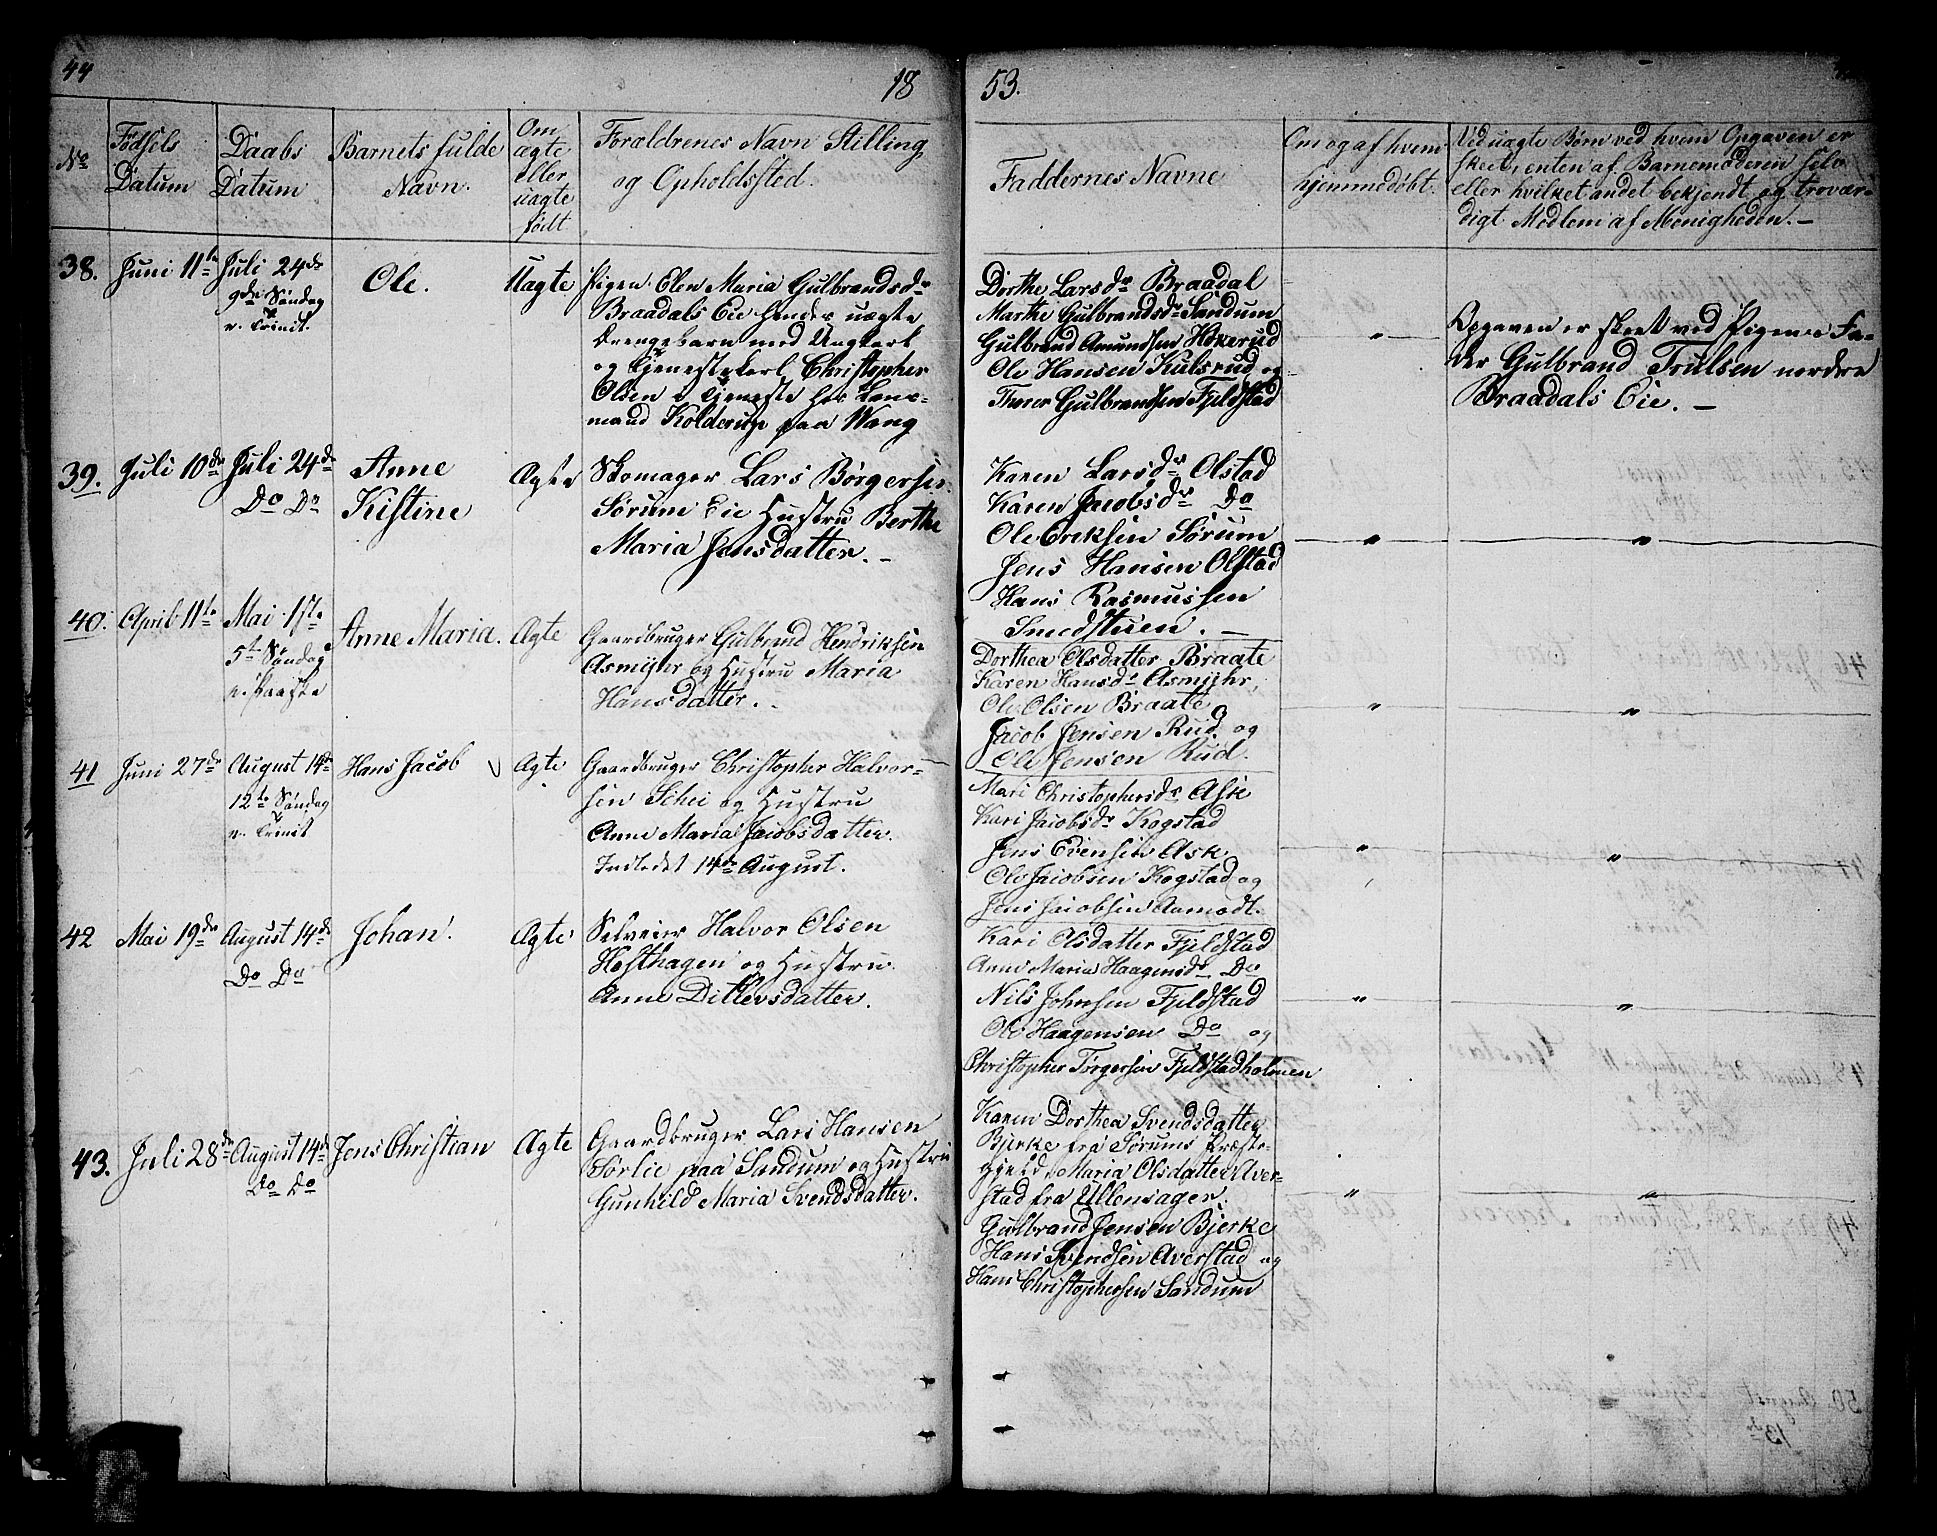 44
18
53.
No
Fødsels
Datum
Daabs
Datum
Barnets fulde
Navn.
Om
ægte
eller
uægte
født
Forældrenes Navn Stilling
og Opholdssted.
Faddernes Navne
Om og af hvem
hjemmedøbt.
Ved uægte Børn ved hvem Opgaven er
skeet, enten af Barnemoderen selv
eller hvilket andet bekjendt og trovær-
digt Medlem af Menigheden. —
38.
Juni 11te
Juli 24de
9de Søndag
e. Trinit.
Ole.
Uægte
Pigen Elen Maria Gulbrandsdr
Braadals Eie hendes uægte
Drengebarn med Ungkarl
og Tjenestekarl Christopher
Olsen i Tjeneste hos Lens-
mand Kolderup paa Wang
Dorthe Larsdr Braadal
Marthe Gulbrandsdr Sandum
Gulbrand Amundsen Høkerud
Ole Hansen Kulsrud og
Thorer Gulbrandsen Fjeldstad
"
Opgaven er skeet ved Pigens Fa-
der Gulbrand Trulsen nordre
Braadals Eie. —
39.
Juli 10de
Juli 24de
Do Do
Anne
Kistine
Ægte
Skomager Lars Børgersen
Sørum Eie Hustru Berthe
Maria Jensdatter. —
Karen Larsdr Olstad
Karen Jacobsdr Do
Ole Eriksen Sørum
Jens Hansen Olstad
Hans Rasmussen
Smedstuen. —
"
"
40.
April 11te
Mai 1ste
5te Søndag
e. Paaske
Anne Maria.
Ægte
Gaardbruger Gulbrand Hendriksen
Asmyhr og Hustru Maria
Hansdatter.
Dorthea Olsdatter Braate
Karen Hansdr Asmyhr,
Ole Olsen Braate
Jacob Jensen Rud og
Ole Jensen Rud.
"
"
41
Juni 27de
August 14de
12te Søndag
e. Trinit
Hans Jacob
Ægte
Gaardbruger Christopher Halvor-
sen Schei og Hustru
Anne Maria Jacobsdatter.
Indledet 14de August.
Mari Christophersdr Ask
Kari Jacobsdr Kogstad
Jens Evensen Ask
Ole Jacobsen Kogstad og
Jens Jacobsen Aamodt.
"
"
42
Mai 19de
August 14de
Do Do
Johan.
Ægte
Selveier Halvor Olsen
Hesthagen og Hustru
Anne Ditlevsdatter.
Kari Olsdatter Fjeldstad
Anne Maria Haagensdr Do
Nils Johnsen Fjeldstad
Ole Haagensen Do og
Christopher Torgersen Fjeldstadholmen
"
"
43.
Juli 28de
August 14de
Do Do
Jens Christian
Ægte
Gaardbruger Lars Hansen
Sørlie paa Sandum og Hustru
Gunhild Maria Svendsdatter.
Karen Dorthea Svendsdatter
Bjerke fra Sørums Præste-
gjeld, Maria Olsdatter Aver-
stad fra Ullensager.
Gulbrand Jensen Bjerke
Hans Svendsen Averstad og
Hans Christophersen Sandum
"
"